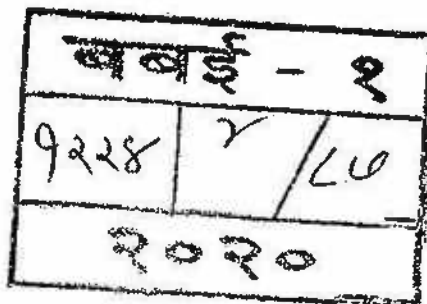 बबई - १
१२२४ २ / ८७
२०२०